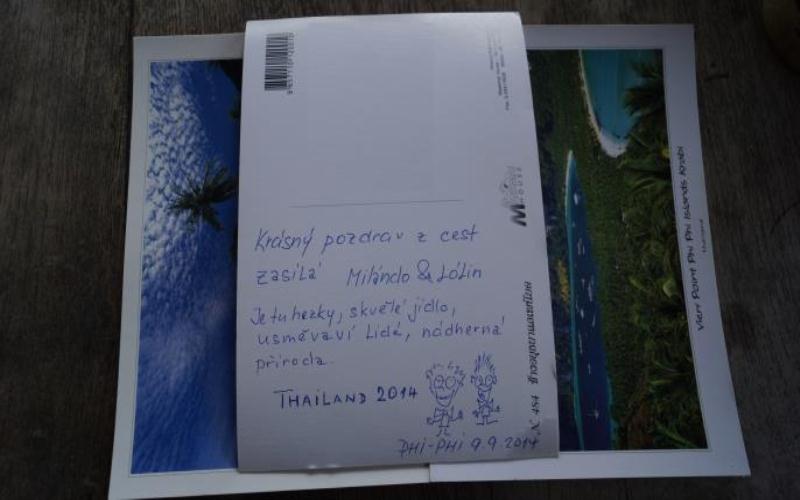 Krásný pozdrav z cest
zasílá Milándo & Lólin
Je tu hezky, skvělé jídlo,
usměvaví lidé, nádherná
příroda.
THAILAND 2014
PHI-PHI 9.9.2014
M
HOUSE
N. 484
View Point Phi Phi Islands Krabi
Thailand